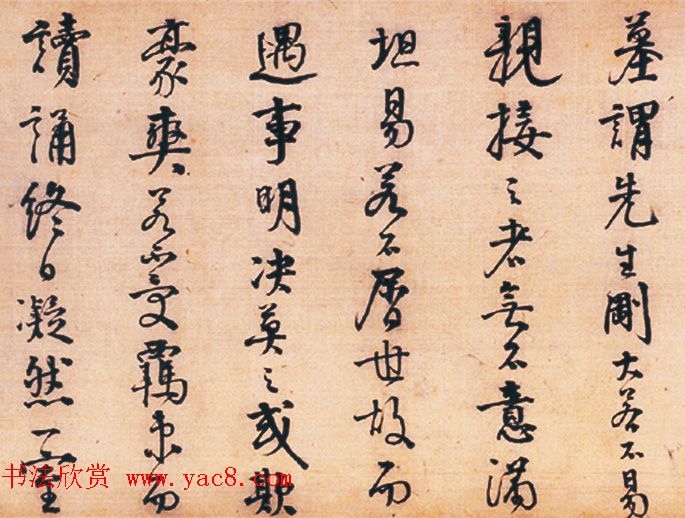 墓謂先生剛大若不易
親接之者無不意滿
坦易若不曆世故而
遇事明決莫之或欺
豪爽若不受羈束而
讀誦終日凝然一室
书法欣赏 www.yac8.com